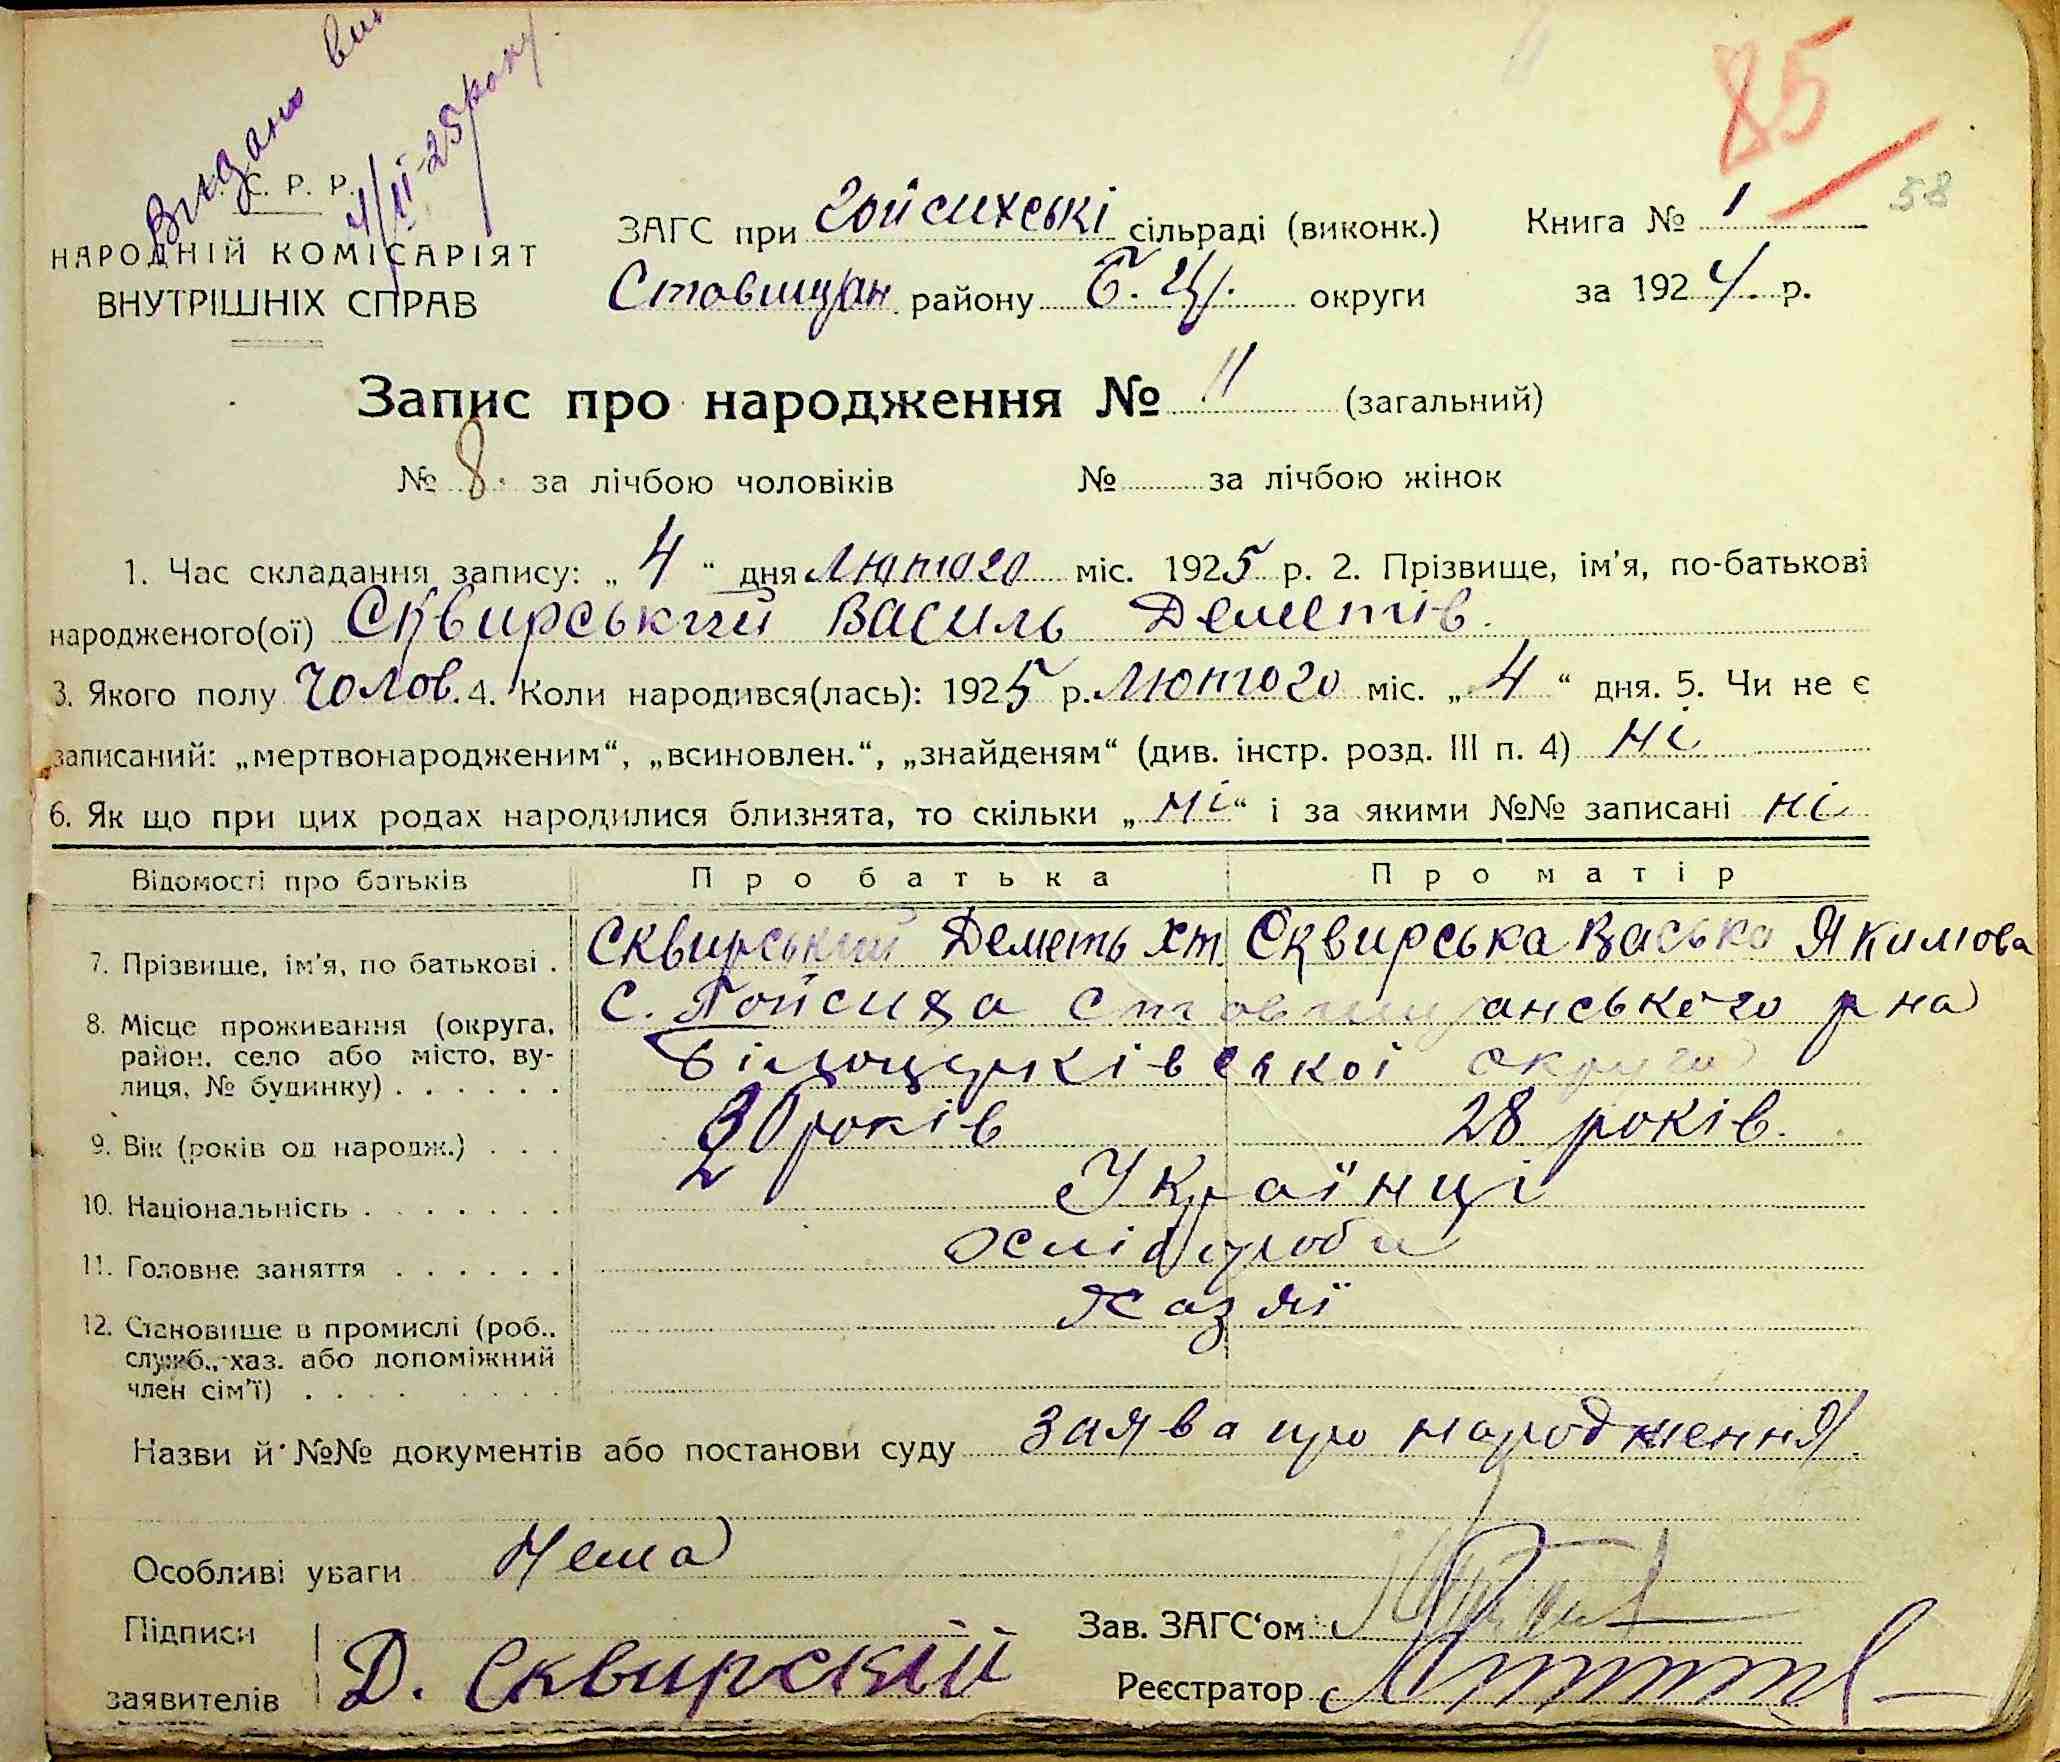 Видано вип
4/II-25 року.
85
58
С. Р. Р.
НАРОДНІЙ КОМІСАРІЯТ
ВНУТРІШНІХ СПРАВ
ЗАГС при Гойсихські сільраді (виконк.) Книга № 1
Ставищан району Б. Ц. округи за 1924. р.
Запис про народження № 11 (загальний)
№ 8. за лічбою чоловіків № за лічбою жінок
1. Час складання запису: „ 4 “ дня лютого міс. 1925 р. 2. Прізвище, ім'я, по-батькові
народженого(ої) Сквирський Василь Деметів.
3. Якого полу Чолов. 4. Коли народився(лась): 1925 р. лютого міс. „ 4 “ дня. 5. Чи не є
записаний: „мертвонародженим“, „всиновлен.“, „знайденям“ (див. інстр. розд. III п. 4) ні
6. Як що при цих родах народилися близнята, то скільки „ ні “ і за якими №№ записані ні
Відомості про батьків Про батька Про матір
7. Прізвище, ім'я, по батькові . Сквирський Деметь Хт. Сквирська Васька Якимова
8. Місце проживання (округа, район, село або місто, вулиця, № будинку) . . . . . . с. Гойсиха Ставищанського р на
Білоцерківської округи
9. Вік (років од народж.) . . . 20 років 28 років.
10. Національність . . . . . . . Українці
11. Головне заняття . . . . . .
12. Становище в промислі (роб., служб., хаз. або допоміжний член сім'ї) . . . . . . . . хазяї
Назви й №№ документів або постанови суду заява про народження.
Особливі уваги Нема
Підписи
заявителів Д. Сквирскій
Зав. ЗАГС‘ом
Реєстратор